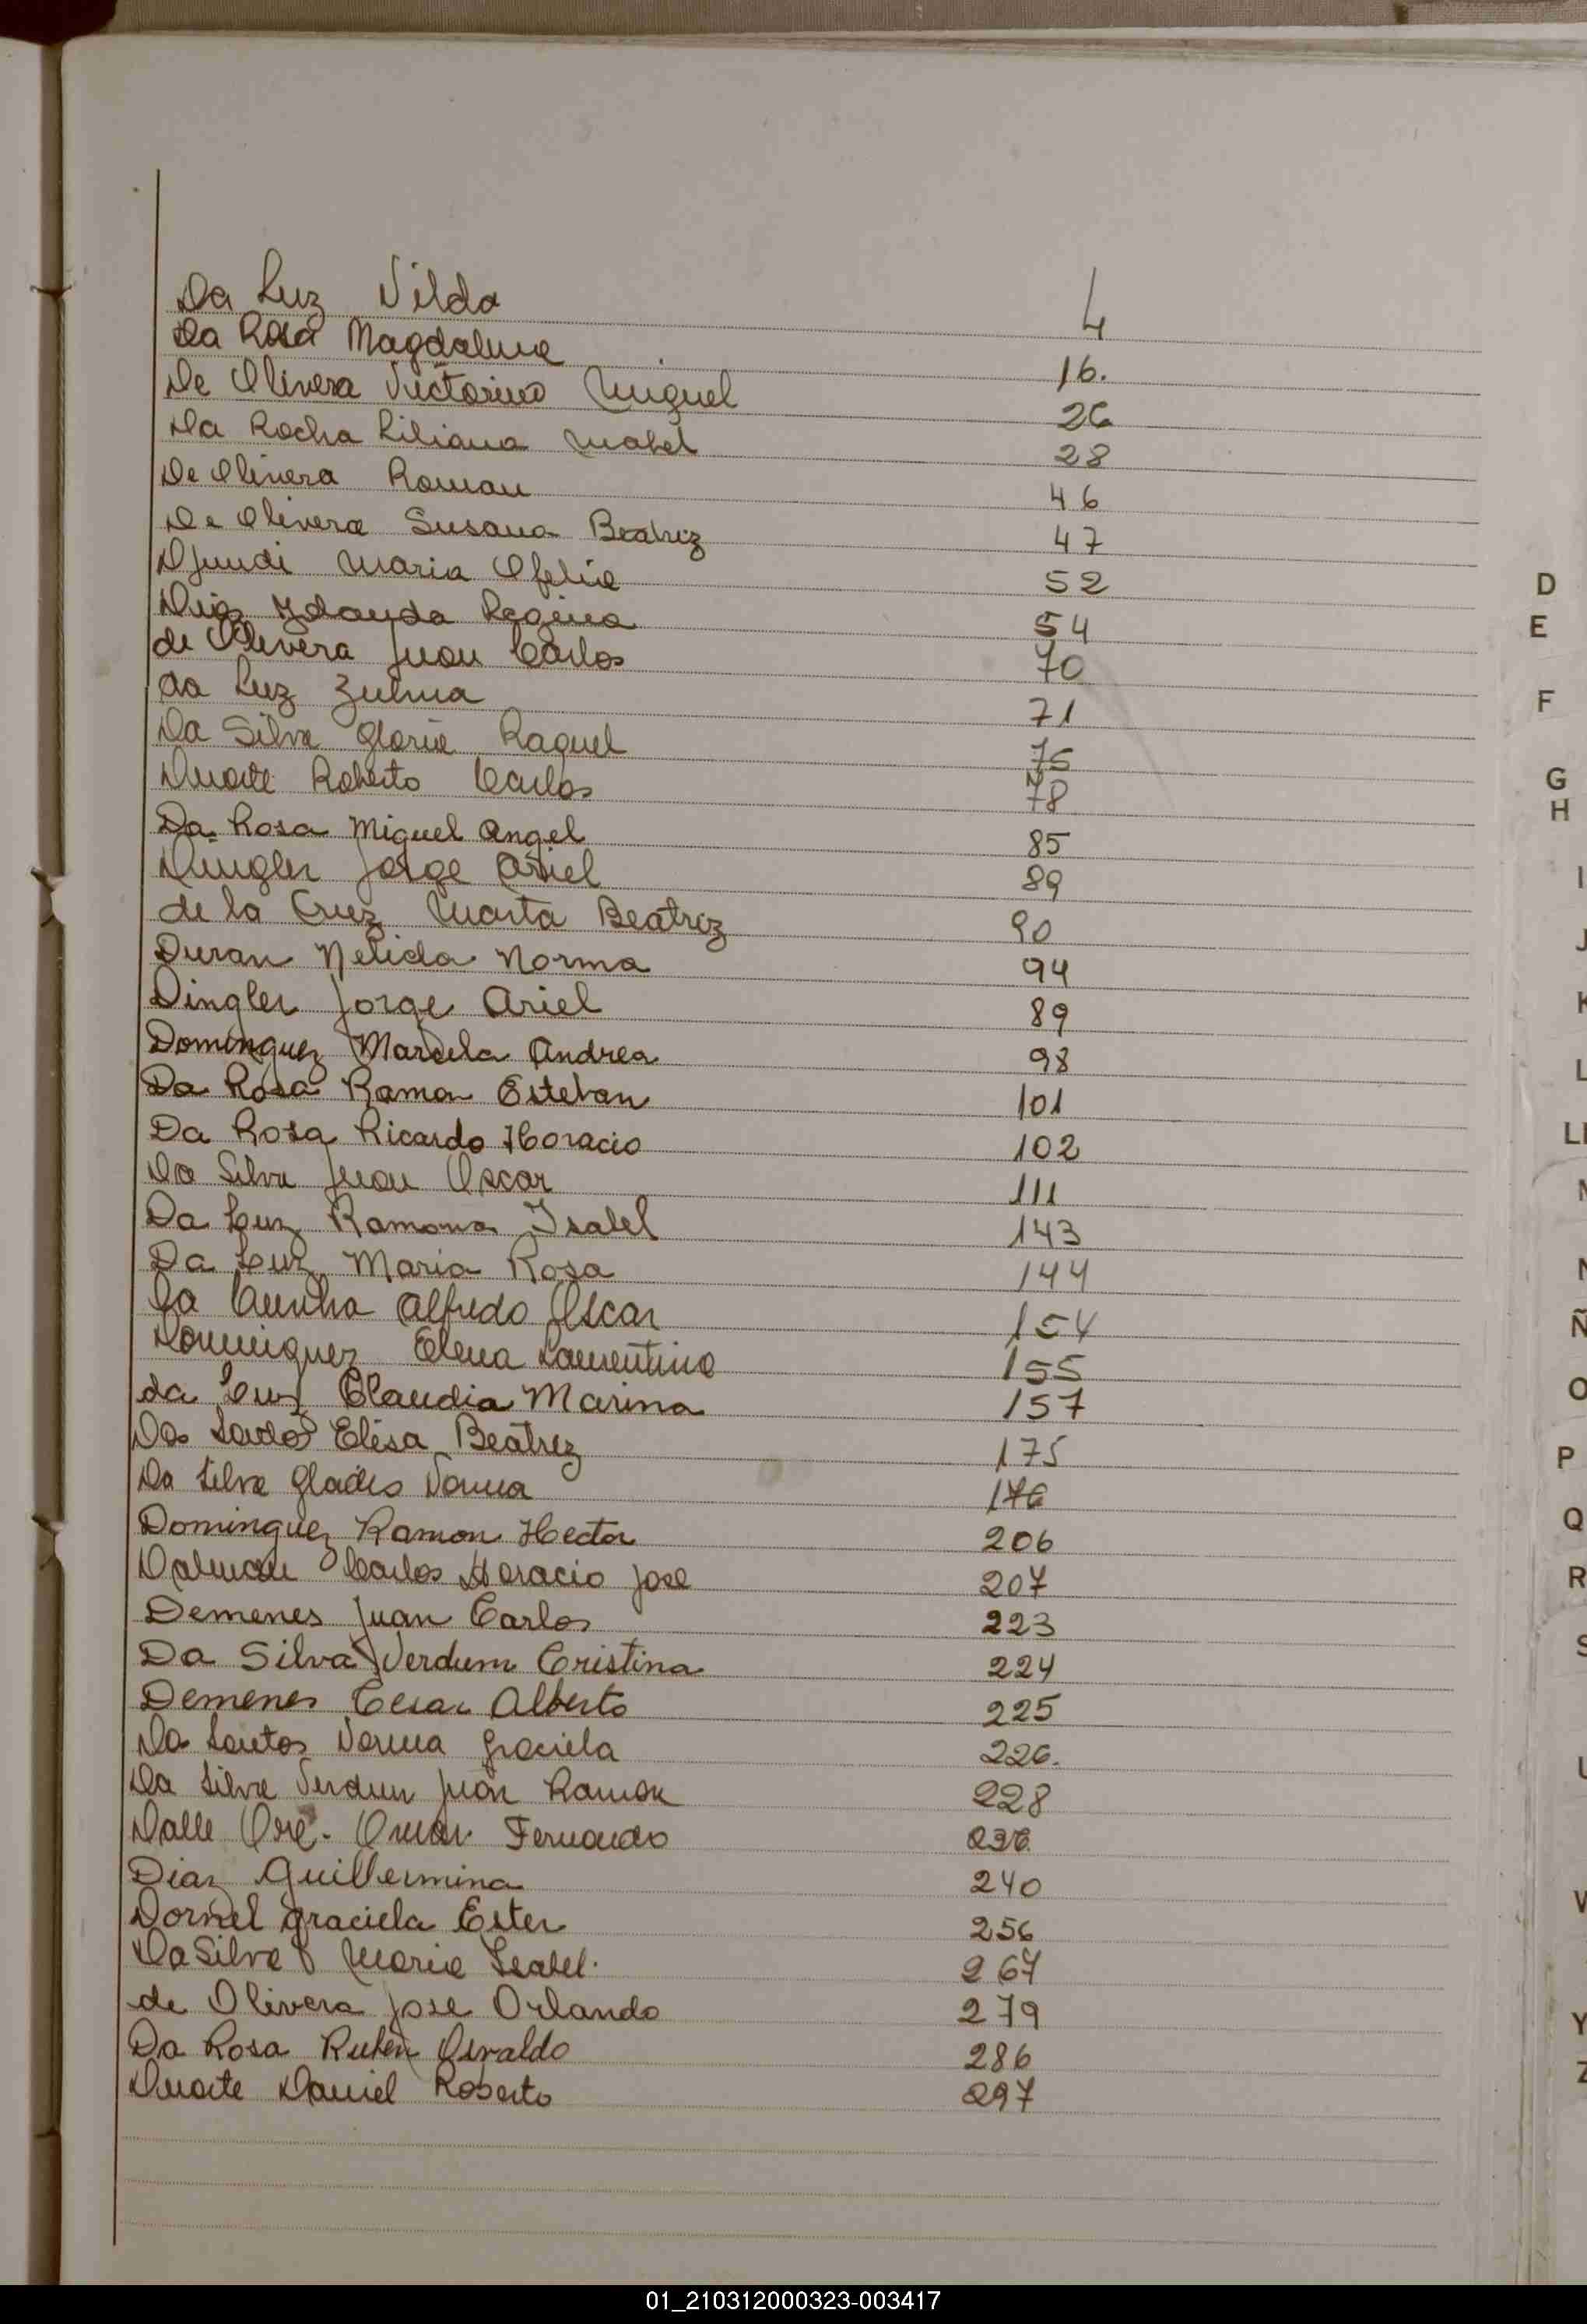 Da Luz Nilda 4
Da Rosa Magdalena 16.
De Olivera Victorino Miguel 26
Da Rocha Liliana Mabel 28
De Olivera Roman 46
De Olivera Susana Beatriz 47
Djundi Maria Ofelia 52
Diaz Yolanda Regina 54
de Olivera Juan Carlos 70
da Luz Zulma 71
Da Silva Gloria Raquel 75
Duarte Roberto Carlos 78
Da Rosa Miguel Angel 85
Dingler Jorge Ariel 89
de la Cruz Marta Beatriz 90
Duran Nelida Norma 94
Dingler Jorge Ariel 89
Dominguez Marcela Andrea 98
Da Rosa Ramon Esteban 101
Da Rosa Ricardo Horacio 102
Da Silva Juan Oscar 111
Da Luz Ramona Isabel 143
Da Luz Maria Rosa 144
Da Cunha Alfredo Oscar 154
Dominguez Elena Laurentina 155
da Luz Claudia Marina 157
Elisa Beatriz 175
Da Silva Gladis Norma 176
Dominguez Ramon Hector 206
Dalmau Carlos Horacio Jose 207
Demenes Juan Carlos 223
Da Silva Verdum Cristina 224
Demenes Cesar Alberto 225
Da Santos Norma Graciela 226.
Da Silva Verdun Juan Ramon 228
Dalle Ore. Omar Fernando 236
Diaz Guillermina 240
Dornel Graciela Ester 256
Da Silva Maria Isabel. 267
de Olivera Jose Orlando 279
Da Rosa Ruben Osvaldo 286
Duarte Daniel Roberto 297
D
E
F
G
H
I
J
K
L
Ll
Ñ
O
P
Q
R
S
U
Y
Z
01_210312000323-003417